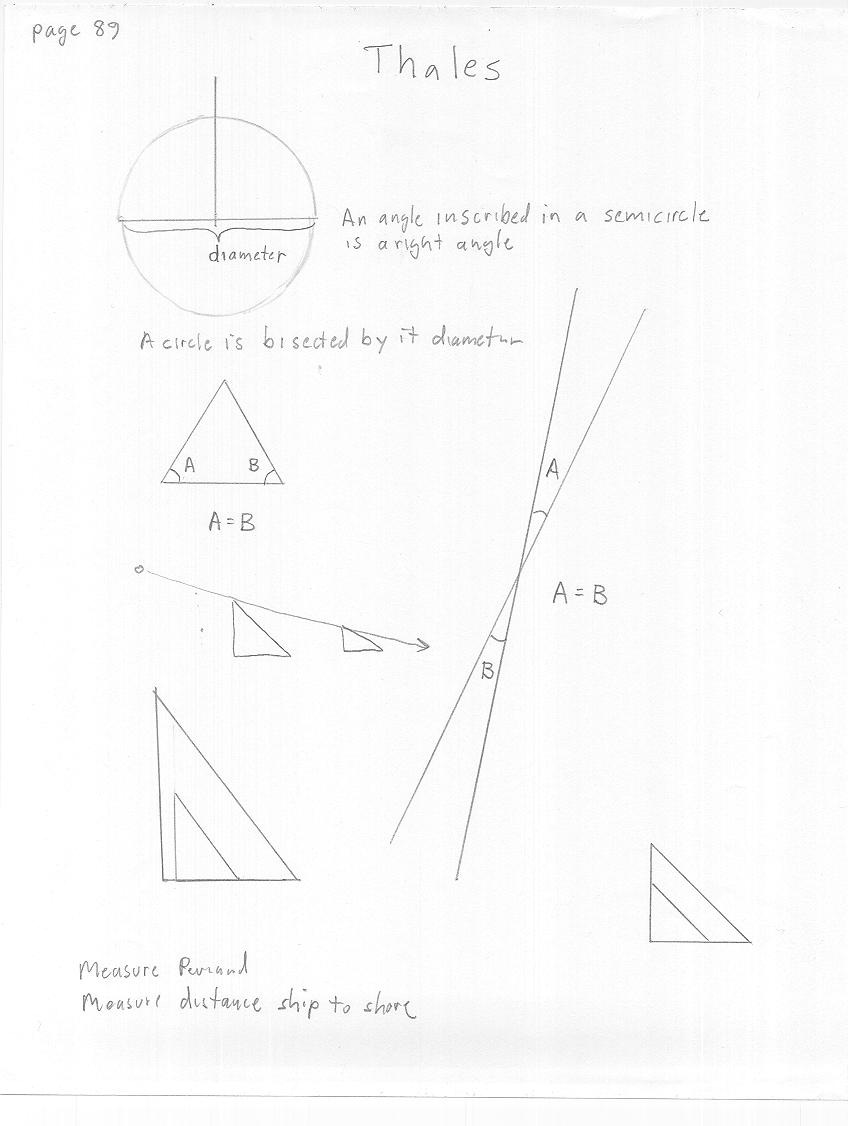 page 89
Thales
diameter
An angle inscribed in a semicircle
is a right angle
A circle is bisected by it diameter
A
B
A = B
A
A = B
B
Measure
Measure distance ship to shore